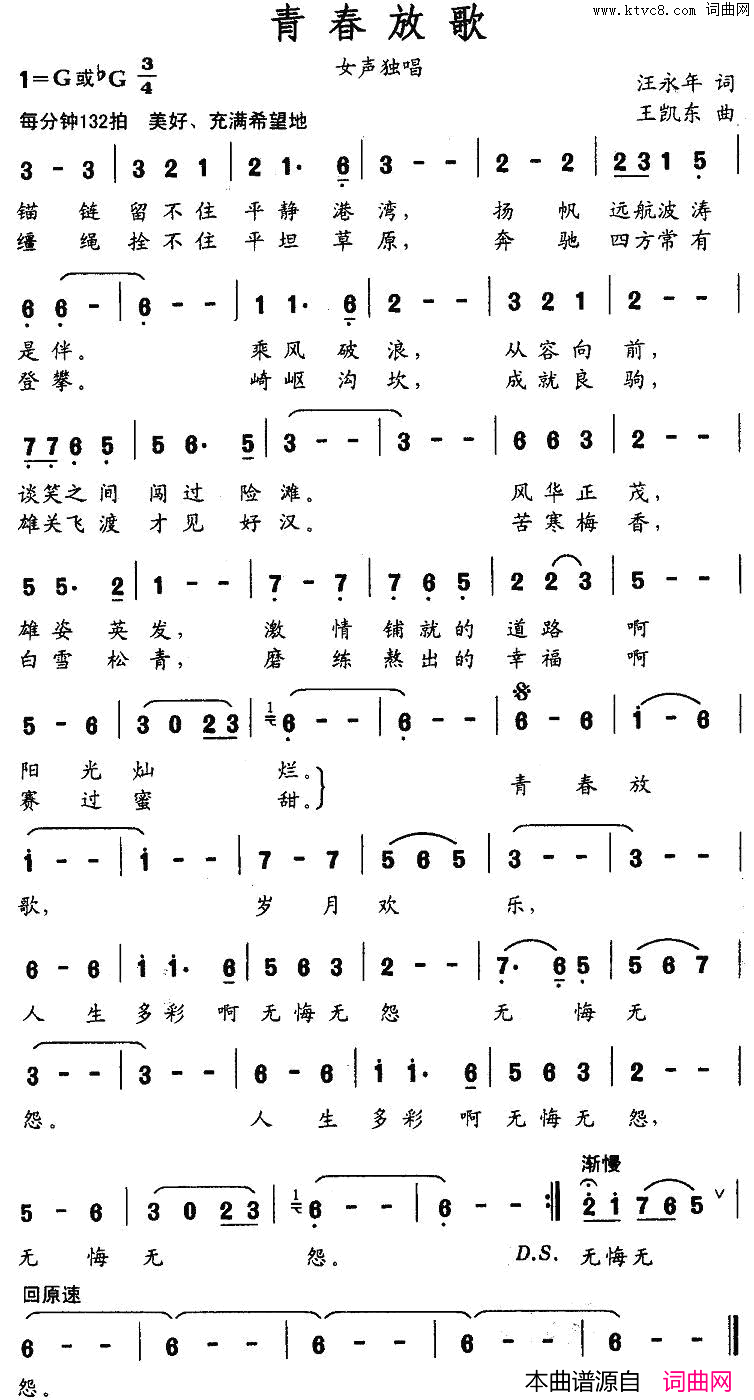 www.ktvc8.com 词曲网
青春放歌
女声独唱
1=G或♭G 3/4
汪永年 词
王凯东 曲
每分钟132拍 美好、充满希望地
3 - 3 | 3 2 1 | 2 1· 6 | 3 - - | 2 - 2 | 2 3 1 5 |
锚 链 留不住 平静 港 湾, 扬 帆 远航波涛
缰 绳 拴不住 平坦 草 原, 奔 驰 四方常有
6 6 - | 6 - - | 1 1· 6 | 2 - - | 3 2 1 | 2 - - |
是伴。 乘风 破 浪, 从容向 前,
登攀。 崎岖 沟 坎, 成就良 驹,
7 7 6 5 | 5 6· 5 | 3 - - | 3 - - | 6 6 3 | 2 - - |
谈笑之间 闯过 险 滩。 风华正 茂,
雄关飞渡 才见 好 汉。 苦寒梅 香,
5 5· 2 | 1 - - | 7 - 7 | 7 6 5 | 2 2 3 | 5 - - |
雄姿 英 发, 激 情 铺就的 道路 啊
白雪 松 青, 磨 练 熬出的 幸福 啊
5 - 6 | 3 0 2 3 | 1 6 - - | 6 - - | 6 - 6 | 1 - 6 |
阳 光 灿 烂。
赛 过 蜜 甜。
青 春 放
1 - - | 1 - - | 7 - 7 | 5 6 5 | 3 - - | 3 - - |
歌, 岁 月 欢 乐,
6 - 6 | 1 1· 6 | 5 6 3 | 2 - - | 7· 6 5 | 5 6 7 |
人 生 多彩 啊 无悔无 怨 无 悔 无
3 - - | 3 - - | 6 - 6 | 1 1· 6 | 5 6 3 | 2 - - |
怨。 人 生 多彩 啊 无悔无 怨,
渐慢
5 - 6 | 3 0 2 3 | 1 6 - - | 6 - - :‖ 2 1 7 6 5 ∨ |
无 悔 无 怨。 D.S. 无悔无
回原速
6 - - | 6 - - | 6 - - | 6 - - | 6 - - ‖
怨。
本曲谱源自 词曲网